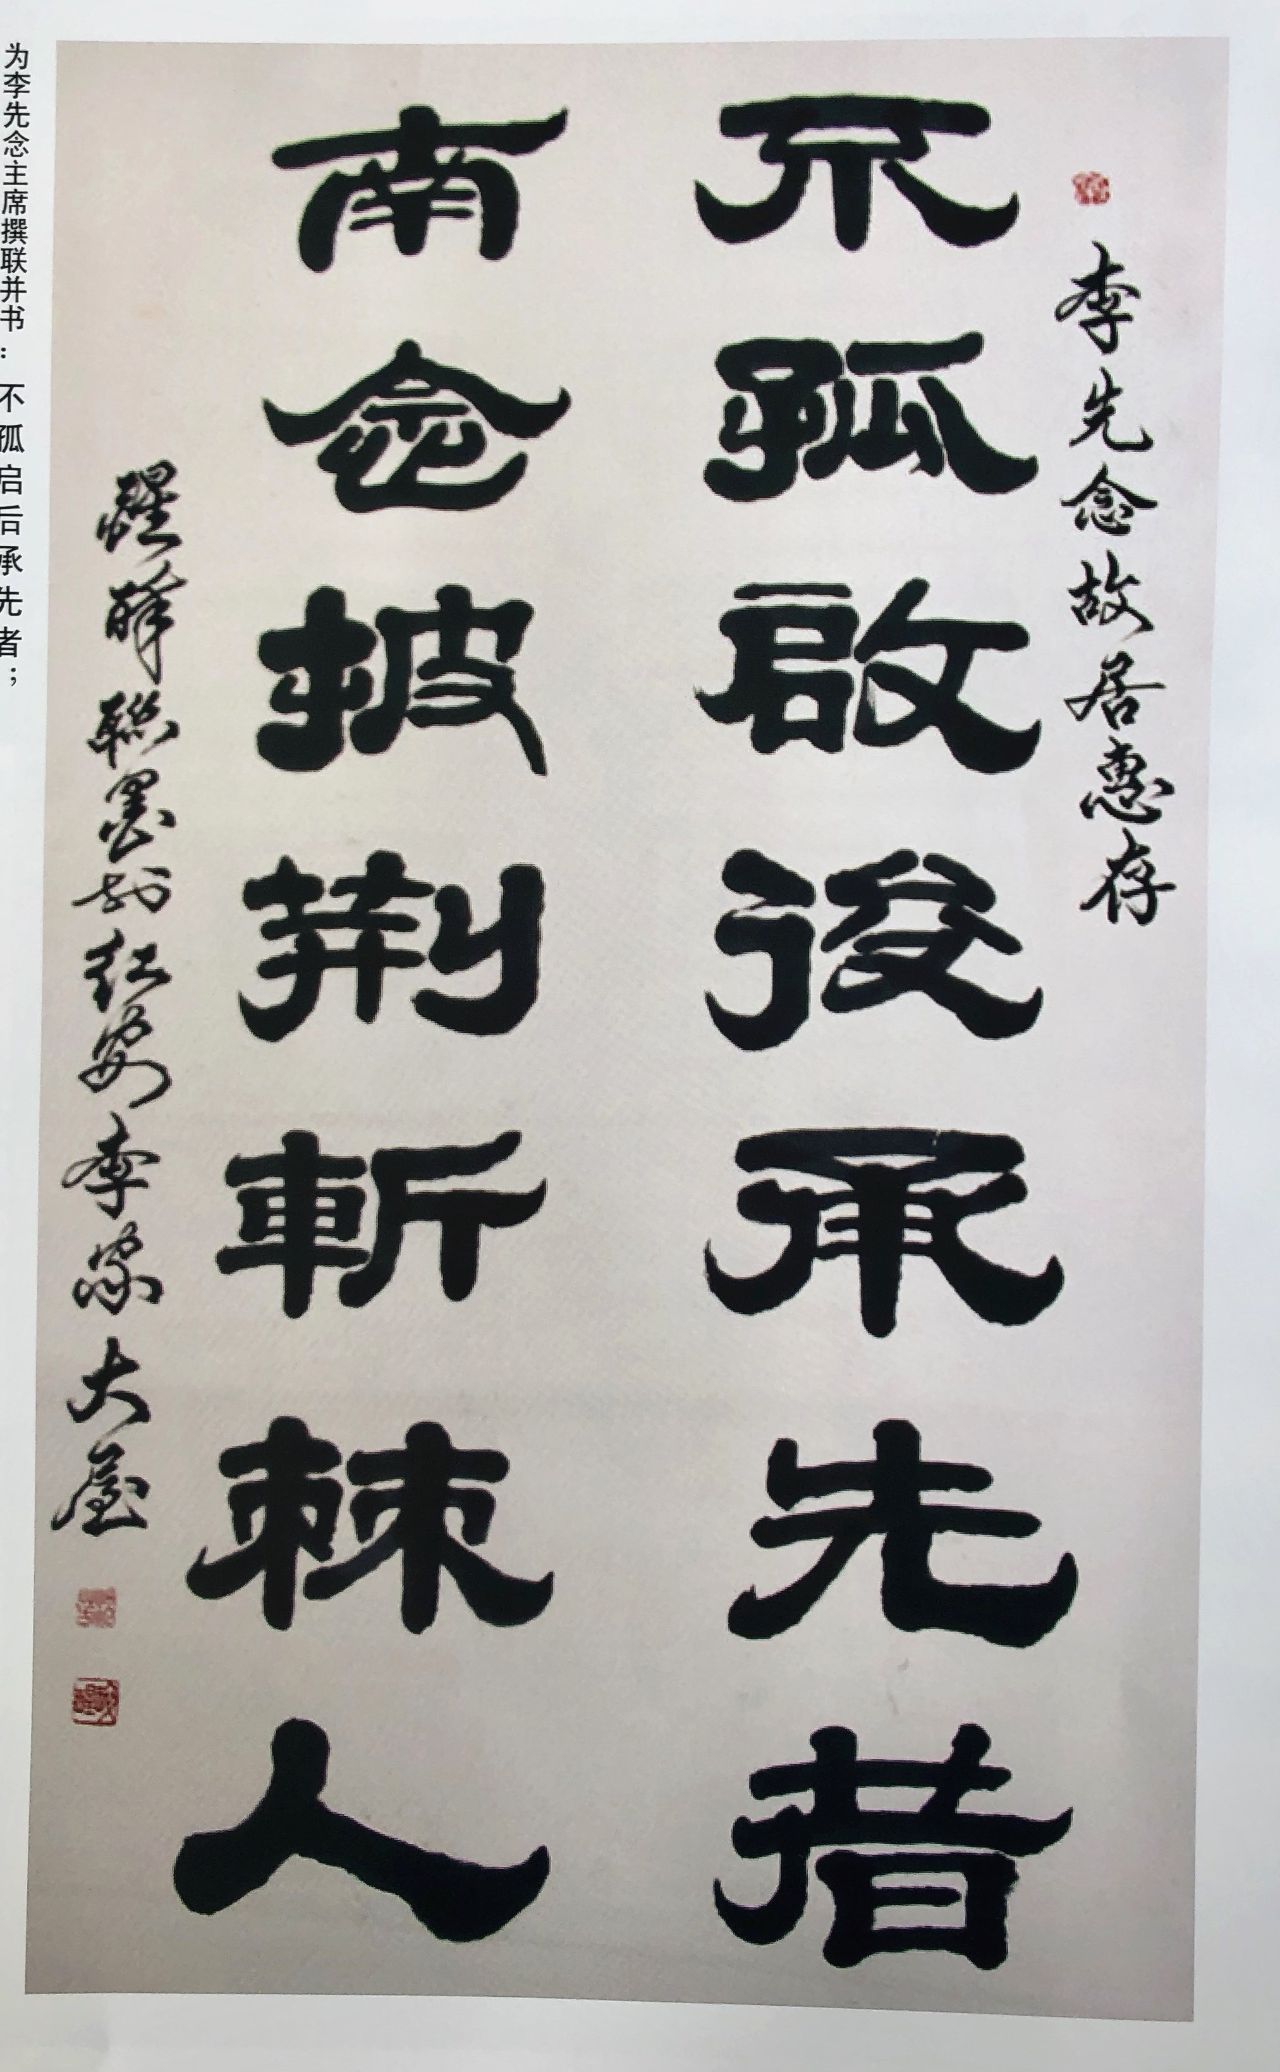 李先念故居惠存
不孤啟後承先者
南念披荆斬棘人
聯墨於紅安李家大屋
为李先念主席撰联并书：不孤启后承先者；